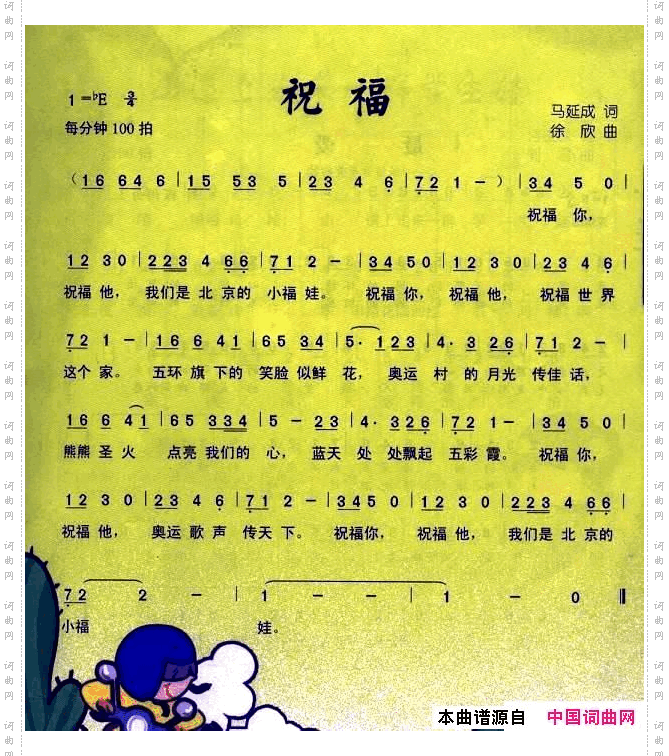 祝 福
1=♭E 3/4
每分钟 100 拍
马延成 词
徐 欣 曲
( 16 64 6 | 15 53 5 | 23 4 6 | 72 1 - ) | 34 5 0 |
祝福 你,
12 30 | 223 4 66 | 71 2 - | 34 50 | 12 30 | 23 4 6 |
祝福 他, 我们是 北 京的 小福 娃。 祝福 你, 祝福 他, 祝福 世 界
72 1 - | 16 6 41 | 65 34 | 5· 123 | 4· 3 26 | 71 2 - |
这个 家。 五环 旗 下的 笑脸 似鲜 花, 奥运 村 的 月光 传佳 话,
16 6 41 | 65 334 | 5 - 23 | 4· 326 | 72 1 - | 34 50 |
熊熊 圣 火 点亮 我们的 心, 蓝天 处 处飘起 五彩 霞。 祝福 你,
12 3 0 | 23 4 6 | 71 2 - | 345 0 | 12 3 0 | 223 4 66 |
祝福 他, 奥运 歌 声 传天 下。 祝福你, 祝福 他, 我们是 北 京的
72 2 - | 1 - - | 1 - 0 ‖
小福 娃。
本曲谱源自 中国词曲网